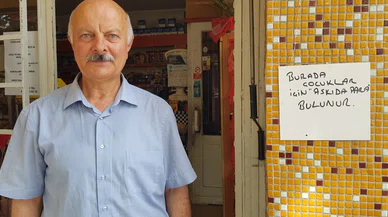 BURADA
ÇOCUKLAR
İÇİN "ASKIDA PARA"
BULUNUR.